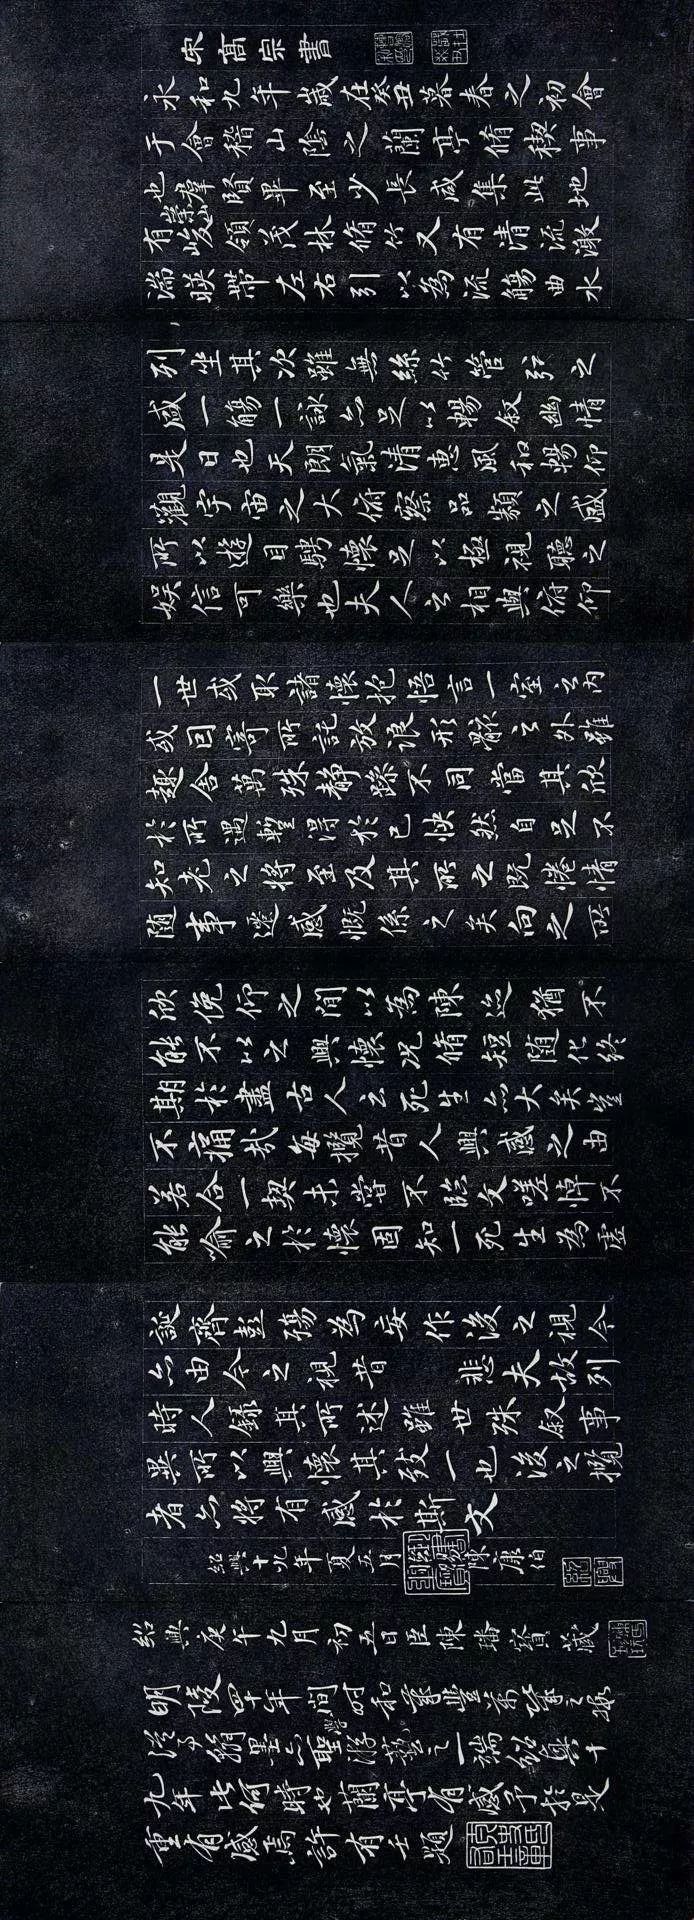 宋高宗書
永和九年歲在癸丑暮春之初會
于會稽山陰之蘭亭脩稧事
也群賢畢至少長咸集此地
有崇山峻領茂林脩竹又有清流激
湍暎帶左右引以為流觴曲水
列坐其次雖無絲竹管弦之
盛一觴一詠亦足以暢敘幽情
是日也天朗氣清惠風和暢仰
觀宇宙之大俯察品類之盛
所以遊目騁懷足以極視聽之
娛信可樂也夫人之相與俯仰
一世或取諸懷抱悟言一室之內
或因寄所託放浪形骸之外雖
趣舍萬殊靜躁不同當其欣
於所遇暫得於己怏然自足不
知老之將至及其所之既惓情
隨事遷感慨係之矣向之所
欣俛仰之間以為陳迹猶不
能不以之興懷況脩短隨化終
期於盡古人云死生亦大矣豈
不痛哉每攬昔人興感之由
若合一契未嘗不臨文嗟悼不
能喻之於懷固知一死生為虛
誕齊彭殤為妄作後之視今
亦由今之視昔 悲夫故列
時人錄其所述雖世殊敘事
異所以興懷其致一也後之攬
者亦將有感於斯文
紹興十九年夏五月 陳康伯
紹興庚午九月初五日臣陳璠寶藏
明陵四十年間時和歲豐萬幾之暇
從事翰墨亦聖學游藝之一端紹興十
九年此何時也蘭亭有感予於是
重有感焉許有壬題